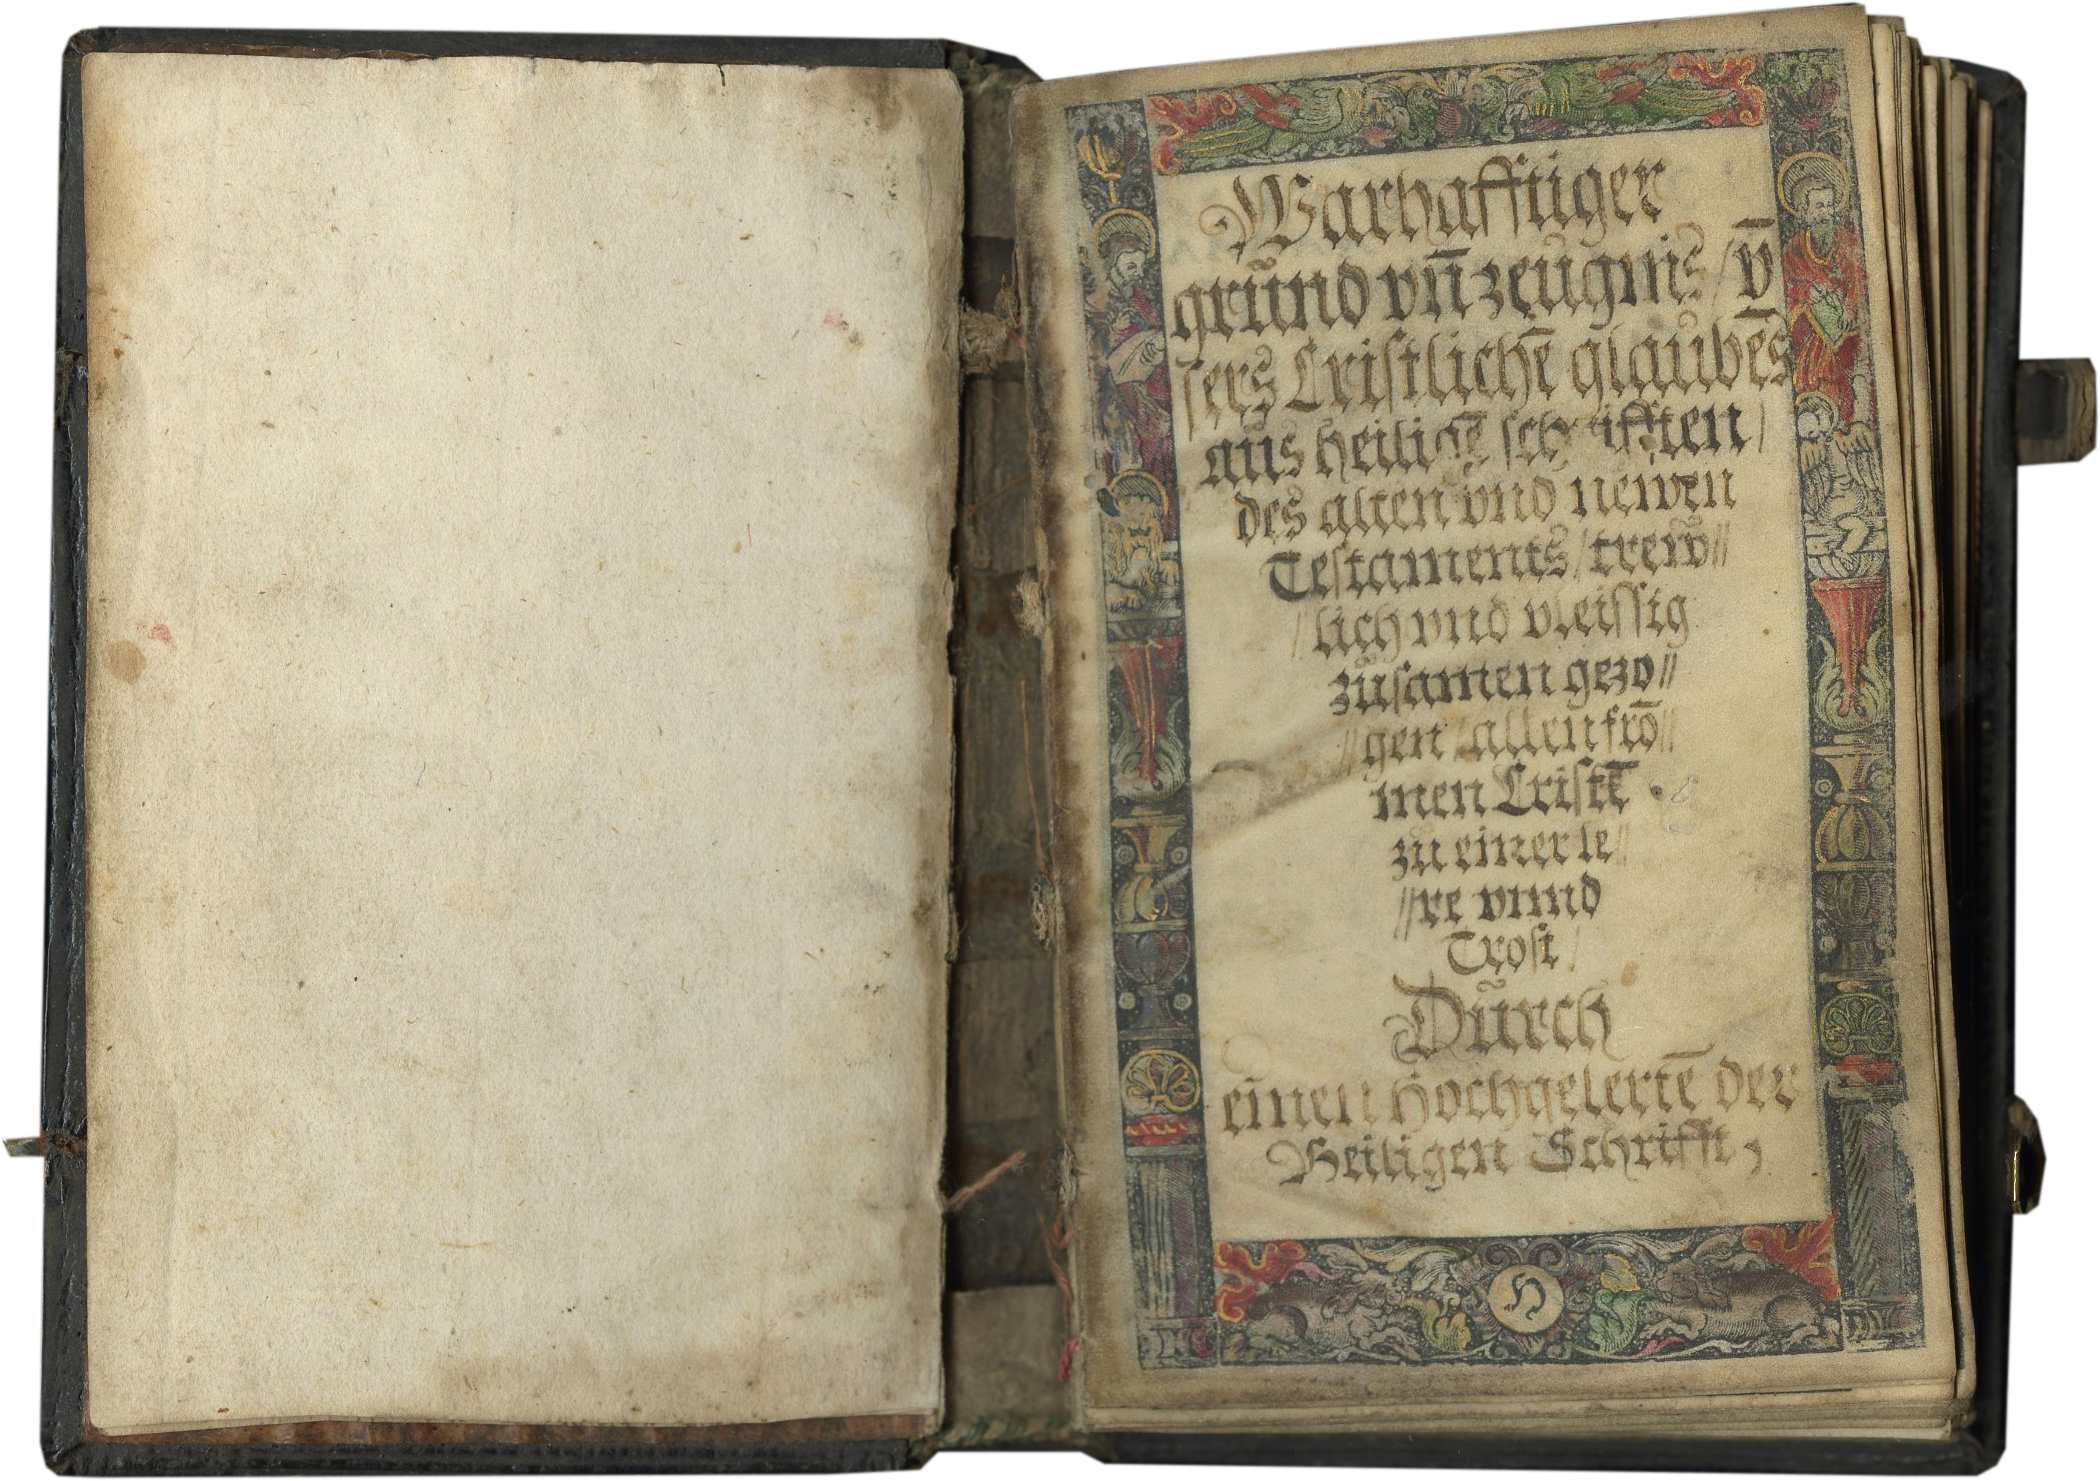 Warhafftiger
grůnd vn̄ zeůgnis / v̄
sers Cristlichē glaubēs
aůs heiligē schrifften /
des alten vnd newen
Testaments / trew̄ //
// lich vnd vleissig
zůsamen gezo //
// gen / allen frō //
men Cristē
zu einer le //
// re vnnd
Trost /
Důrch
einen hochgelertē der
Heiligen Schrifft ,